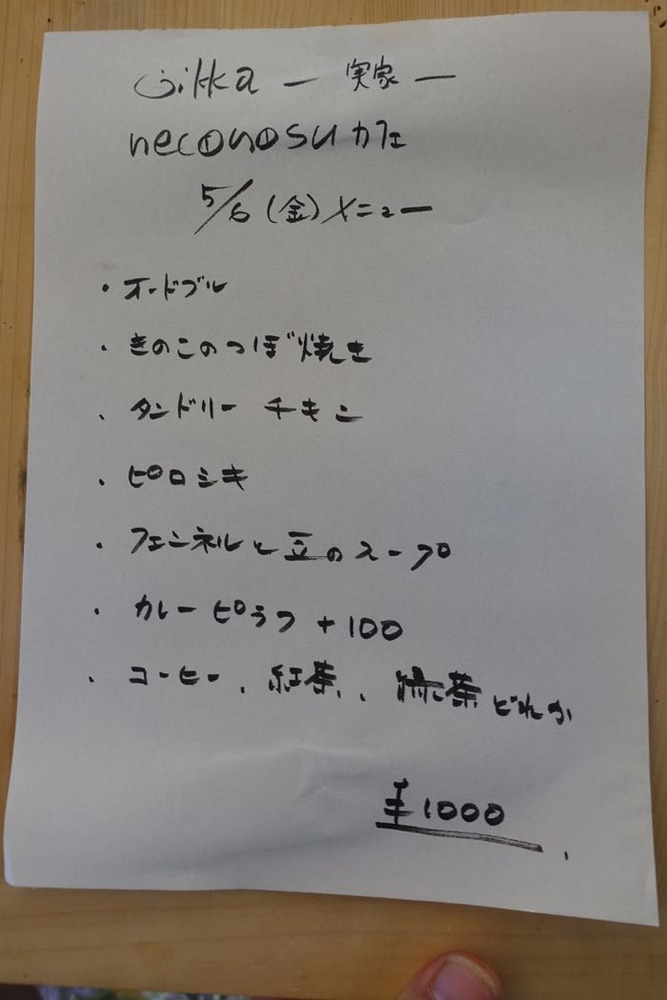 jikka ー 実家 ー
neconosu カフェ
5/6 (金) メニュー
・オードブル
・きのこのつぼ焼き
・タンドリー チキン
・ピロシキ
・フェンネルと豆のスープ
・カレーピラフ +100
・コーヒー、紅茶、緑茶どれか
¥1000